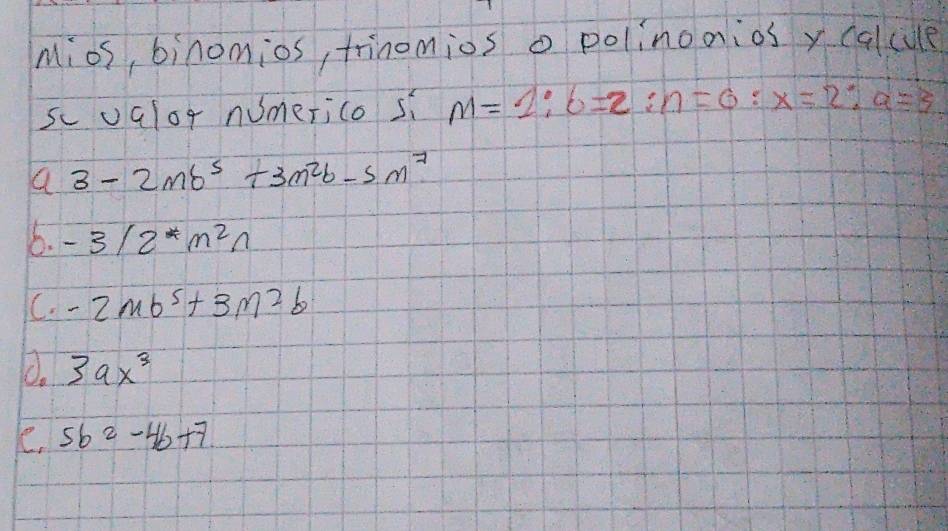 mios, binomios, trinomios o polinomios y calcule
su valor númerico si m = 1; b = 2; n = 6; x = 2; a = 3
a 3 - 2mb⁵ + 3m²b - 5m⁷
b. - 3 / 2 * m²n
c. - 2mb⁵ + 3m²b
d. 3ax³
e. 5b² - 4b + 7